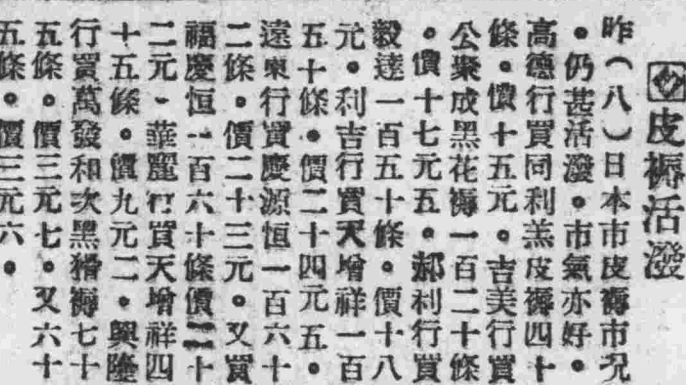 皮褥活潑
昨（八）日本市皮褥市况
。仍甚活潑。市氣亦好。
高德行買同利羔皮褥四十
條。價十五元。吉美行買
公聚成黑花褥一百二十條
。價十七元五。郝利行買
毅達一百五十條。價十八
元。利吉行買天增祥一百
五十條。價二十四元五。
遠東行買慶源恒一百六十
二條。價二十三元。又買
福慶恒一百六十條價二十
二元、華麗行買天增祥四
十五條。價九元二。興隆
行買萬發和次黑猾褥七十
五條。價三元七。又六十
五條。價三元六。